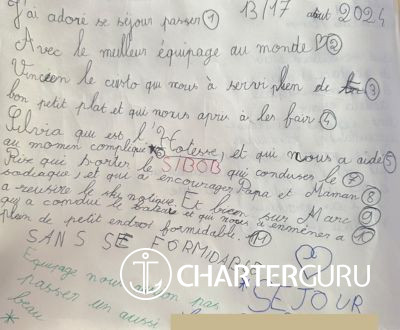 J'ai adoré se séjour passer ① 13/17 août 2024
Avec le meilleur équipage au monde ♡ ②
Vinceen le custo qui nous à servi plein de ③
bon petit plat et qui nous apris à les fair ④
Silvia qui est l'Hotesse, et qui nous a aidé ⑤
au momen complique ⑥
Rise qui borter le SIBOB qui conduser le ⑦
sodiaque, et qui a encourager Papa et Maman ⑧
a reusire le sky notique. Et bien sur Marc ⑨
qui a condui le bateau et qui nous à enmèner a ⑩
plein de petit endroi formidable. ⑪
SANS SE FORMIDABLE
SEJOUR
Equipage nous auron pas
passer un aussi
beau
*
CHARTERGURU